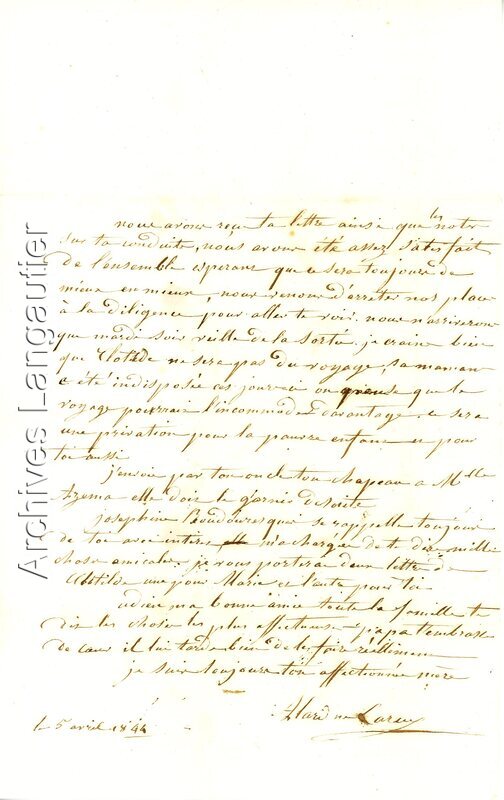 nous avons reçu ta lettre ainsi que les notes
sur ta conduite, nous avons été assez satisfait
de l'ensemble esperant que ce sera toujours de
mieux en mieux, nous venons d'arreter nos places
à la diligence pour aller te voir. nous n'arriverons
que mardi soir veille de la sortie. je crains bien
que Clotilde ne sera pas du voyage, sa maman
a été indisposée ces jours ci on pense que le
voyage pourrais l'incommoder davantage. ce sera
une privation pour la pauvre enfant et pour
toi aussi
j'envoie par ton oncle ton chapeau a Mlle
Azema elle doit le garnir de suite
josephine se rappelle toujours
de toi avec interet m'a chargée de te dire mille
choses amicales. je vous porterai deux lettres de
Clotilde une pour Marie et l'autre pour toi
adieu ma bonne amie toute la famille te
dis les choses les plus affectueuses papa t'embrasse
de cœur il lui tarde bien de le faire réellement
je suis toujours ton affectionnée mère
le 5 avril 1844
Archives Langautier